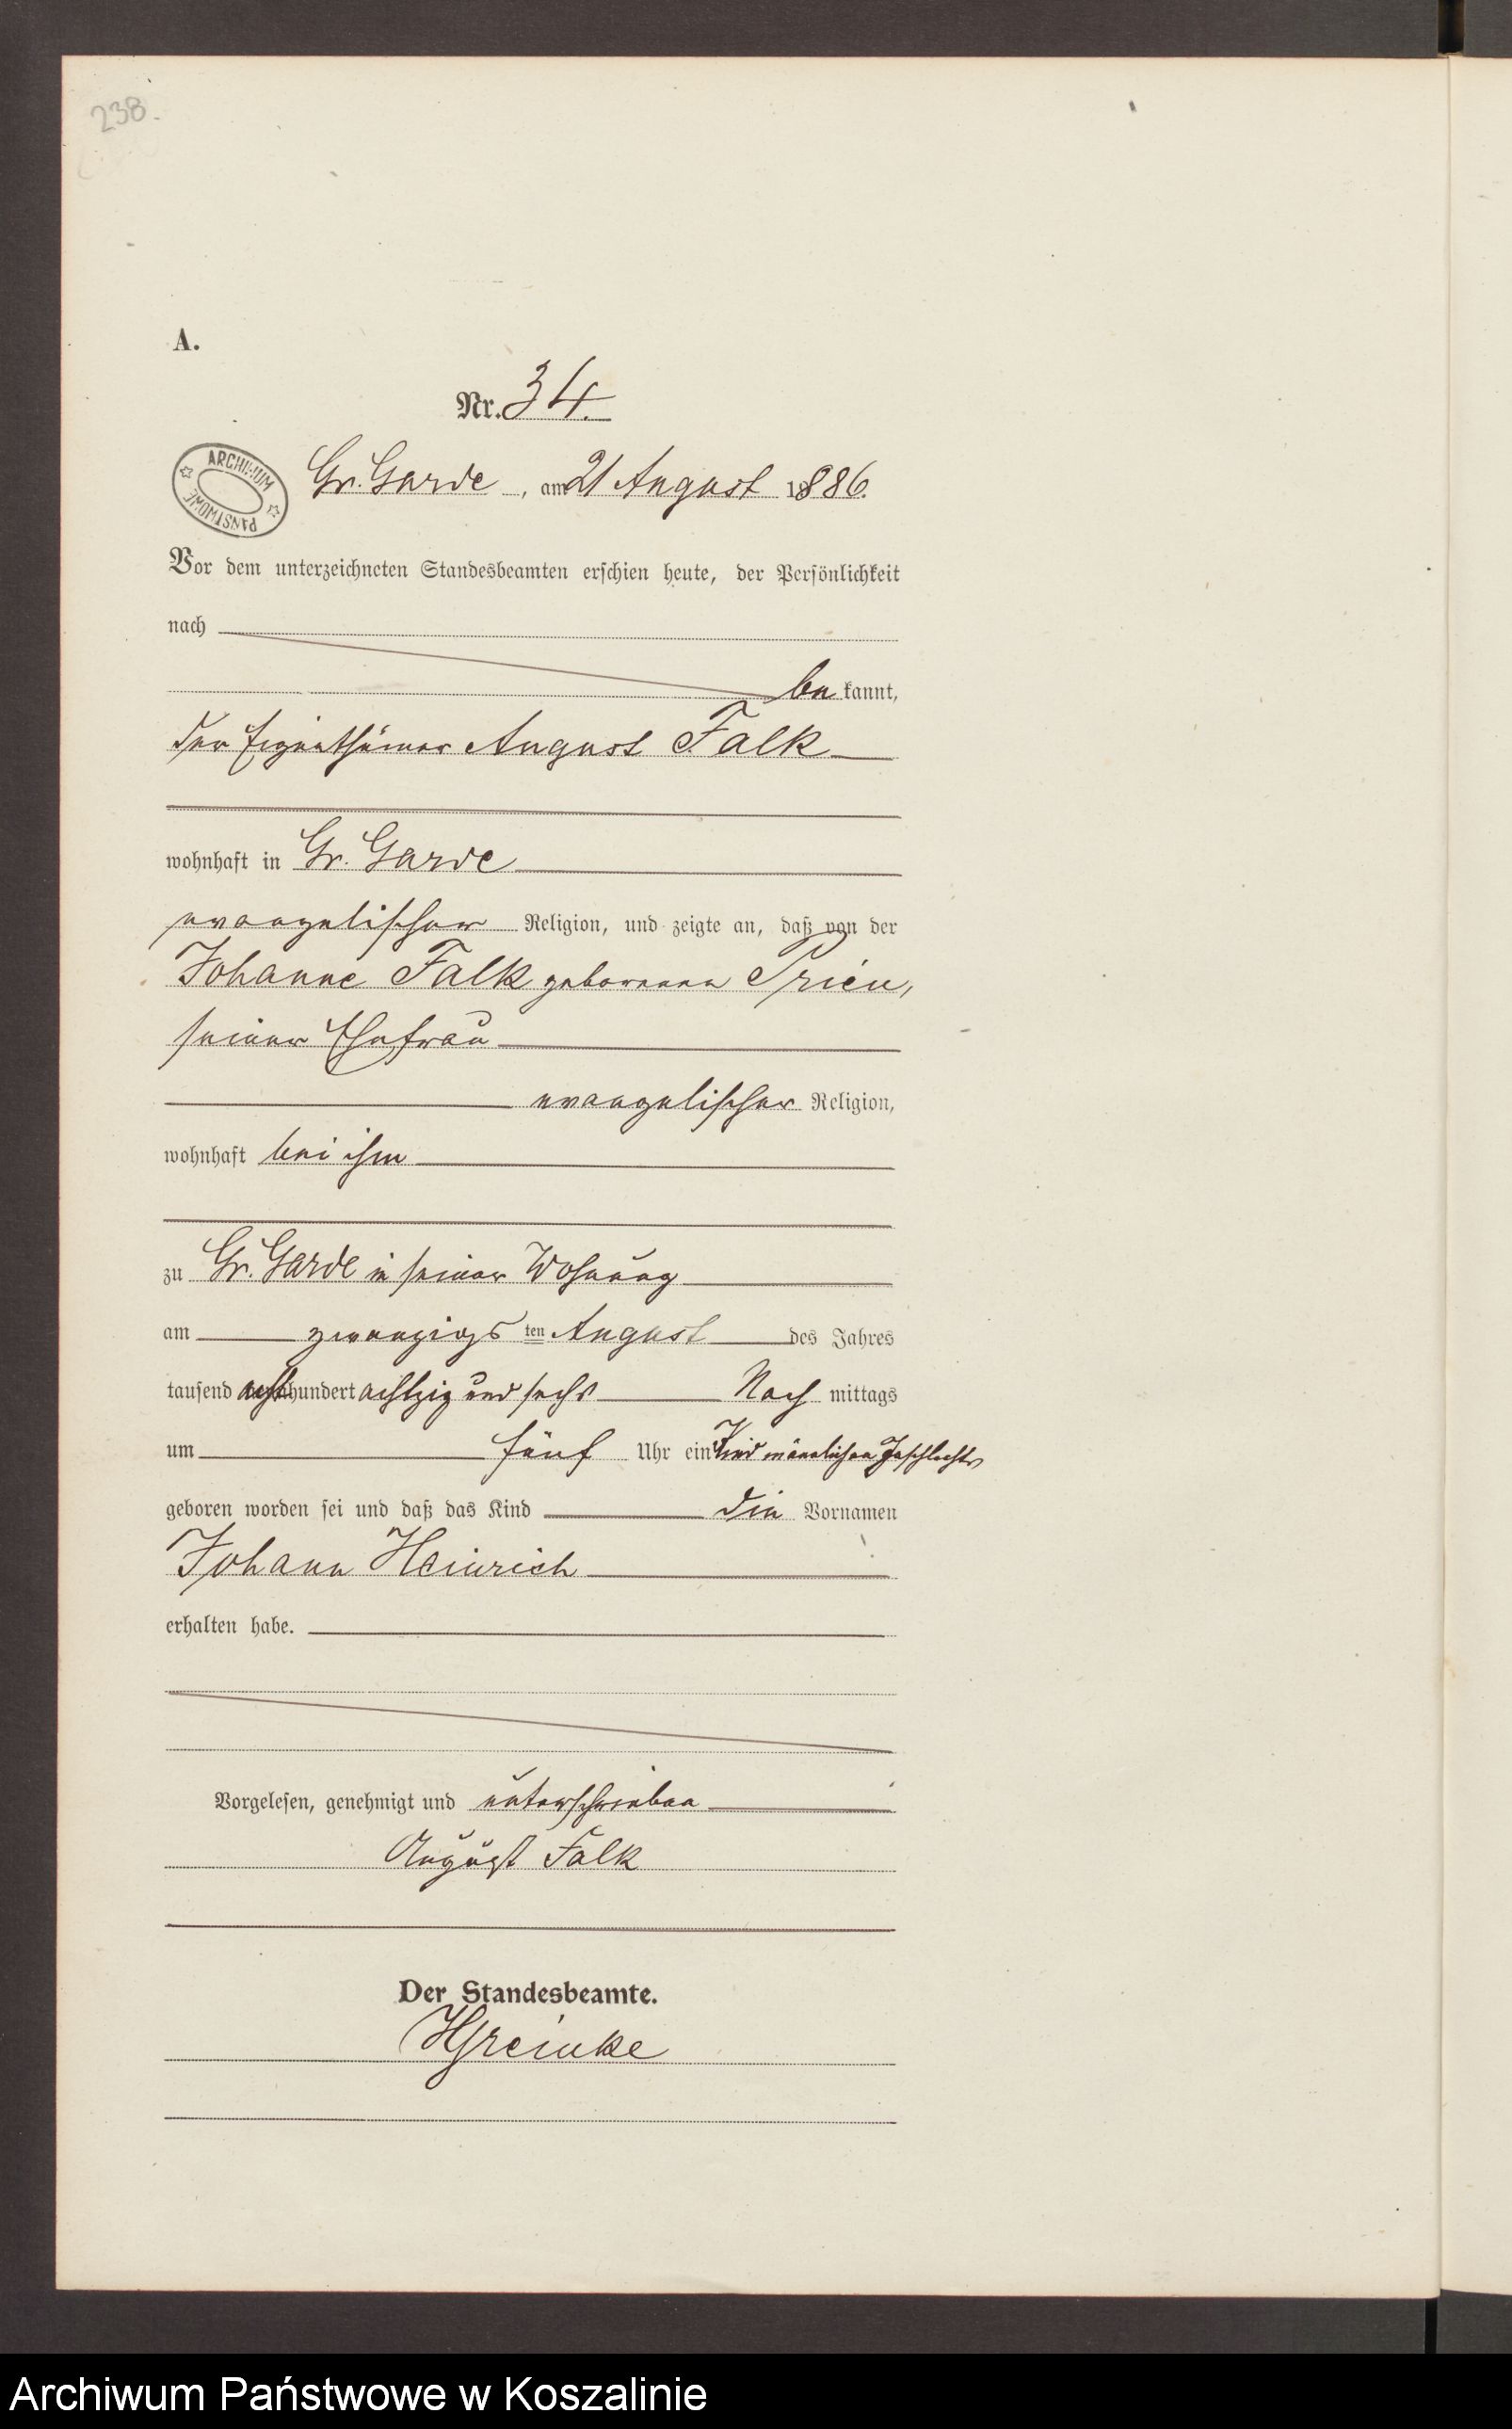 238.
A.
Nr. 34.
ARCHIWUM PAŃSTWOWE
Gr. Garde, am 21 August 1886.
Vor dem unterzeichneten Standesbeamten erschien heute, der Persönlichkeit
nach
be kannt,
der Eigenthümer August Falk
wohnhaft in Gr. Garde
evangelischer Religion, und zeigte an, daß von der
Johanne Falk geborenen Prieu,
seiner Ehefrau
evangelischer Religion,
wohnhaft bei ihm
zu Gr. Garde in seiner Wohnung
am zwanzigs ten August des Jahres
tausend acht hundert achtzig und sechs Nach mittags
um fünf Uhr ein Kind männlichen Geschlechts
geboren worden sei und daß das Kind die Vornamen
Johann Heinrich
erhalten habe.
Vorgelesen, genehmigt und unterschrieben
August Falk
Der Standesbeamte.
HGreinke
Archiwum Państwowe w Koszalinie